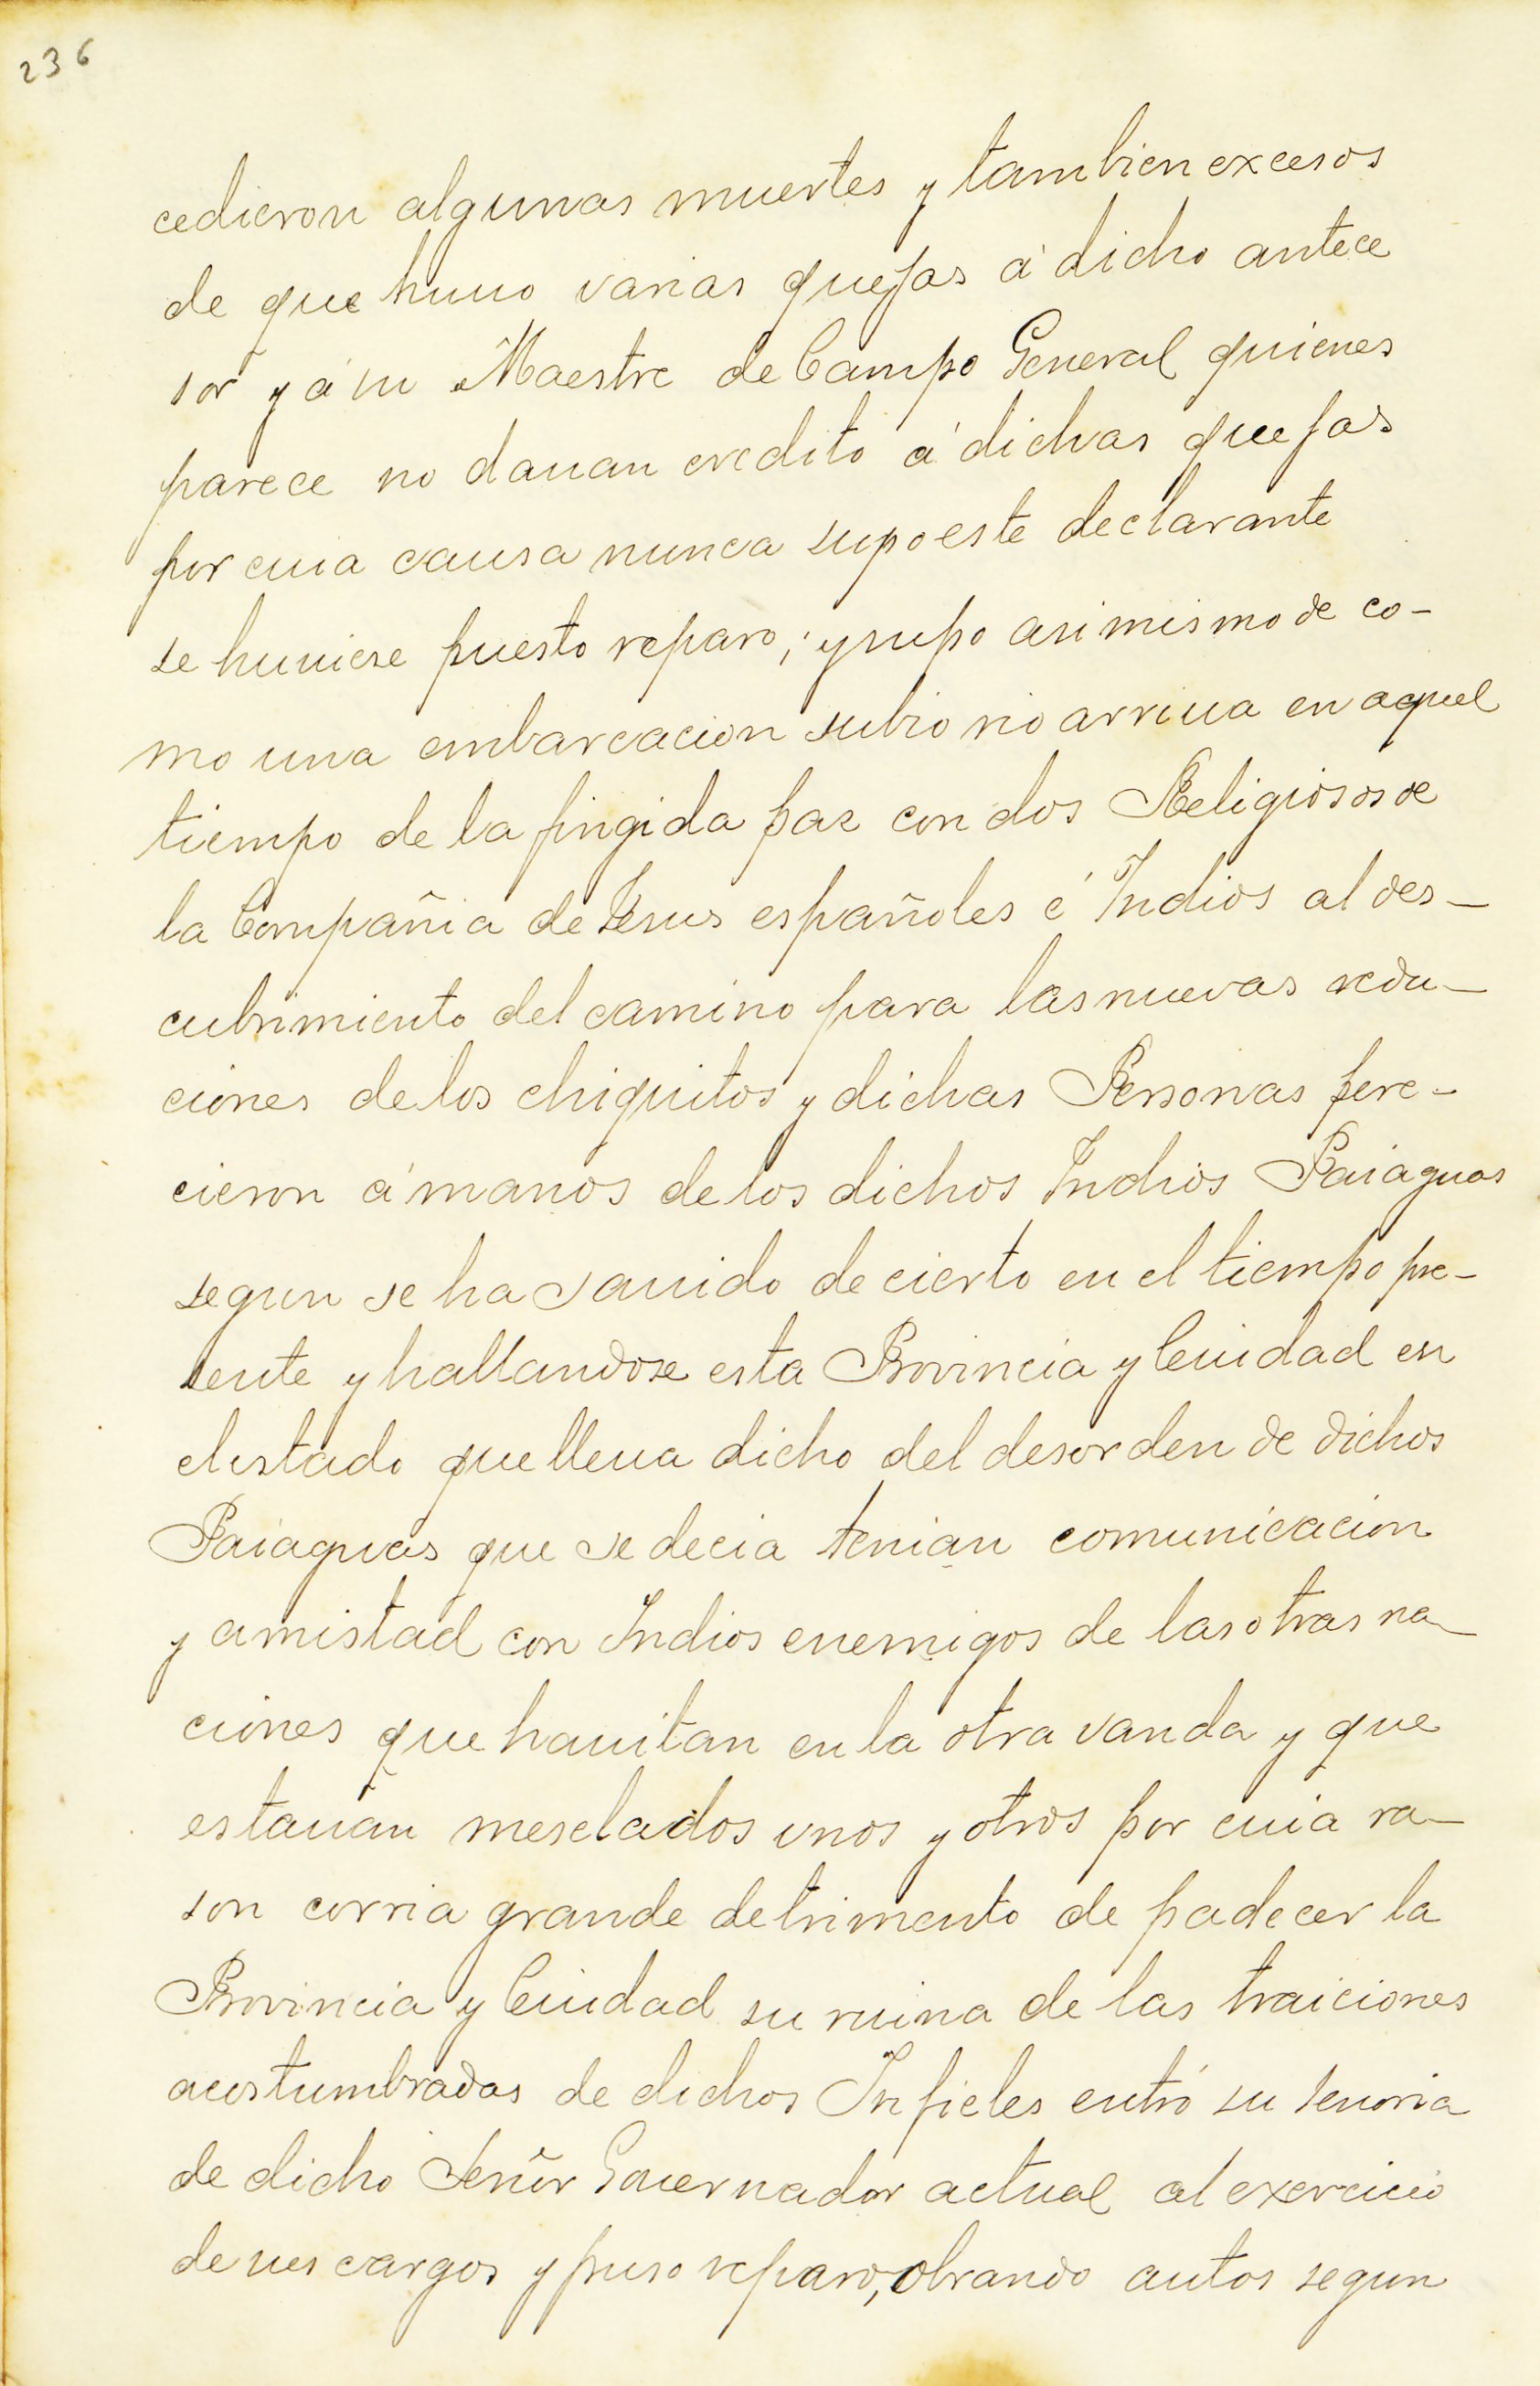 236
cedieron algunas muertes y tambien excesos
de que huuo varias quejas á dicho antece
sor y á su Maestre de Campo General quienes
parece no dauan credito á dichas quejas
por cuia causa nunca supo este declarante
se huuiese puesto reparo; y supo asimismo de co-
mo una embarcacion subio rio arriua en aquel
tiempo de la fingida paz con dos Religiosos de
la Compañia de Jesus españoles é Indios al des-
cubrimiento del camino para las nuevas redu-
ciones de los chiquitos y dichas Personas pere-
cieron á manos de los dichos Indios Paiaguas
segun se ha sauido de cierto en el tiempo pre-
sente y hallandose esta Provincia y Ciudad en
el estado que lleua dicho del desorden de dichos
Paiaguas que se decia tenian comunicacion
y amistad con Indios enemigos de las otras na-
ciones que hauitan en la otra vanda y que
estauan mesclados unos y otros por cuia ra-
son corria grande detrimento de padecer la
Provincia y Ciudad su ruina de las traiciones
acostumbradas de dichos Infieles entró su senoria
de dicho Señor Gouernador actual al exercicio
de sus cargos y puso reparo, obrando autos segun